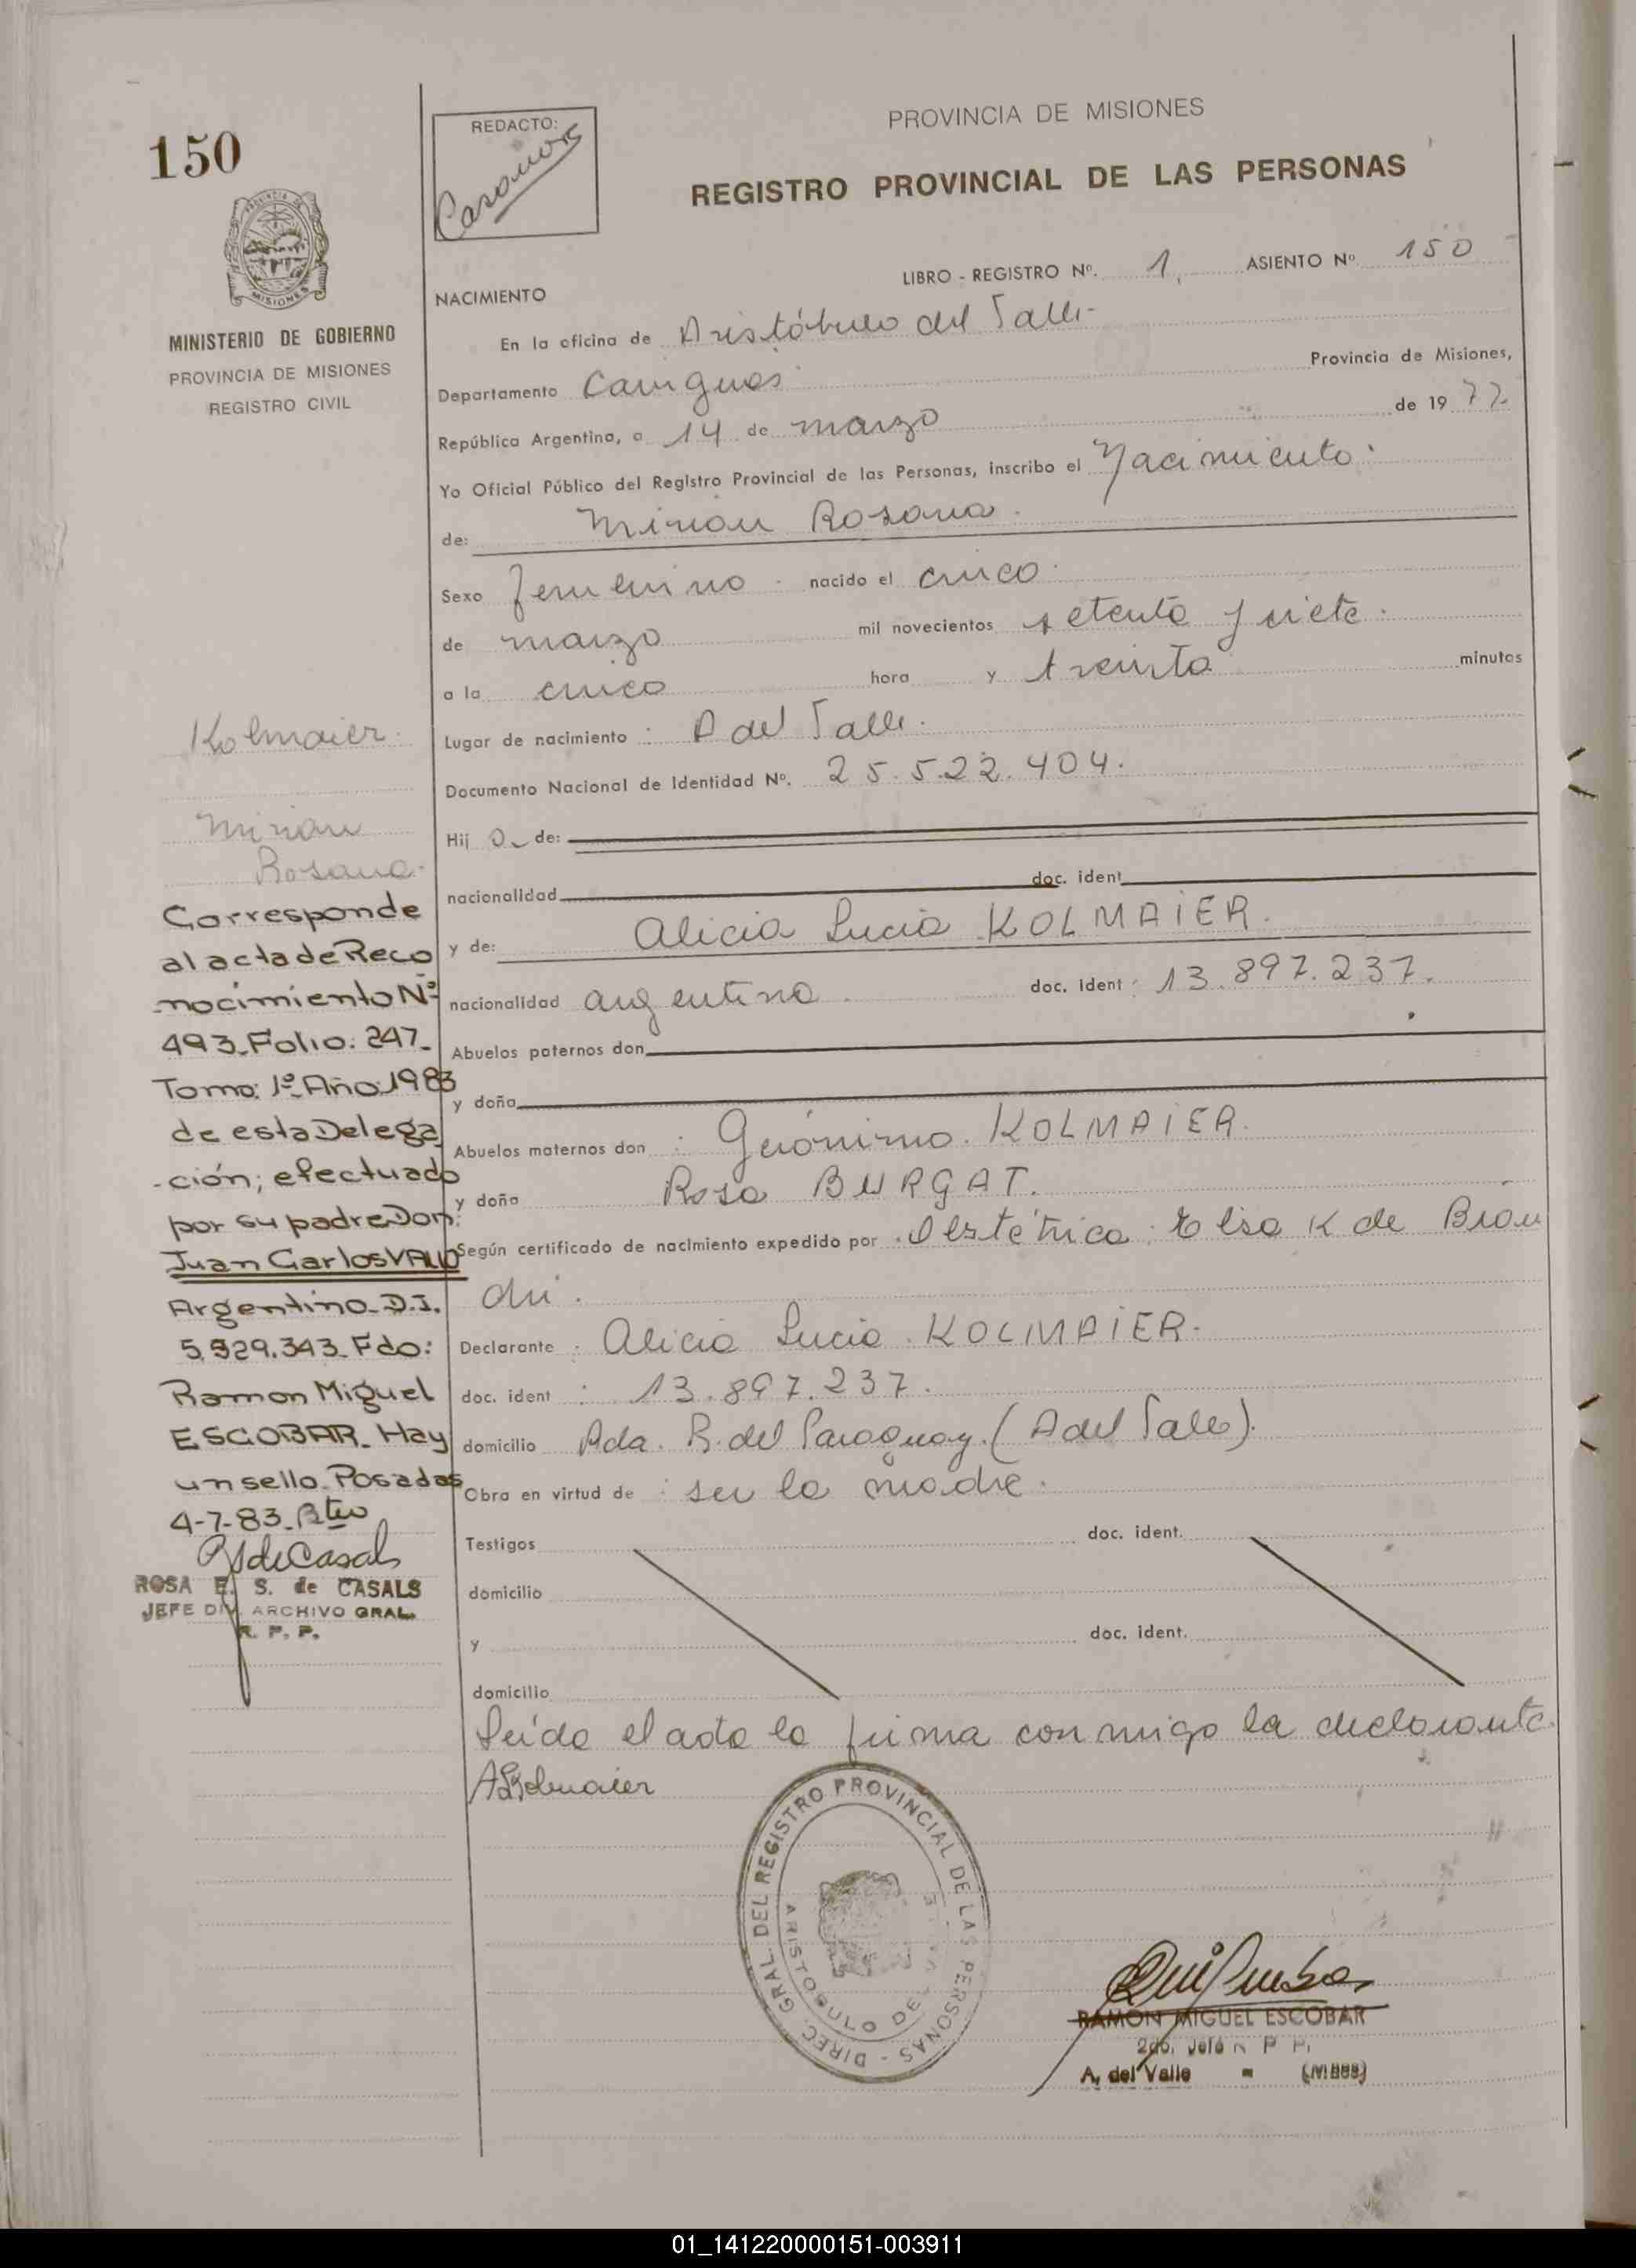 150
MINISTERIO DE GOBIERNO
PROVINCIA DE MISIONES
REGISTRO CIVIL
REDACTO:
PROVINCIA DE MISIONES
REGISTRO PROVINCIAL DE LAS PERSONAS
LIBRO - REGISTRO Nº. 1, ASIENTO Nº 150
NACIMIENTO
En la oficina de Aristóbulo del Valle-
Departamento Cainguas Provincia de Misiones,
República Argentina, a 14 de marzo de 19 77
Yo Oficial Público del Registro Provincial de las Personas, inscribo el Nacimiento
de: Mirian Rosana
Sexo femenino nacido el cinco
de marzo mil novecientos setenta y siete
a la cinco hora y treinta minutos
Lugar de nacimiento : A del Valle
Documento Nacional de Identidad Nº. 25.522.404.
Hij a de:
nacionalidad doc. ident
y de: Alicia Lucia KOLMAIER.
nacionalidad argentina doc. ident : 13.897.237.
Abuelos paternos don
y doña
Abuelos maternos don : Gerónimo KOLMAIER.
y doña Rosa BURGAT.
Según certificado de nacimiento expedido por Obstétrica: Elsa K de Bran
dri.
Declarante : Alicia Lucia KOLMAIER-
doc. ident : 13.897.237.
domicilio Ada. R. del Paraguay. (A del Valle).
Obra en virtud de : ser la madre.
Testigos doc. ident.
domicilio
y doc. ident.
domicilio
Leída el acta la firma conmigo la declarante.
ALKolmaier
Kolmaier
Mirian
Rosana
Corresponde
al acta de Reco
nocimiento Nº
493_Folio: 247_
Tomo: 1º_Año 1983
de esta Delega
-ción; efectuado
por su padre Don:
Juan Carlos VALLO
Argentino_D.I.
5.929.343_Fdo:
Ramon Miguel
ESCOBAR_Hay
un sello_Posadas
4-7-83_
RSdeCasals
ROSA E. S. de CASALS
JEFE DIV. ARCHIVO GRAL.
R. P. P.
DIREC. GRAL. DEL REGISTRO PROVINCIAL DE LAS PERSONAS -
ARISTOBULO DEL
RAMON MIGUEL ESCOBAR
2do. Jefe R P P.
A. del Valle - (Mnes)
01_141220000151-003911